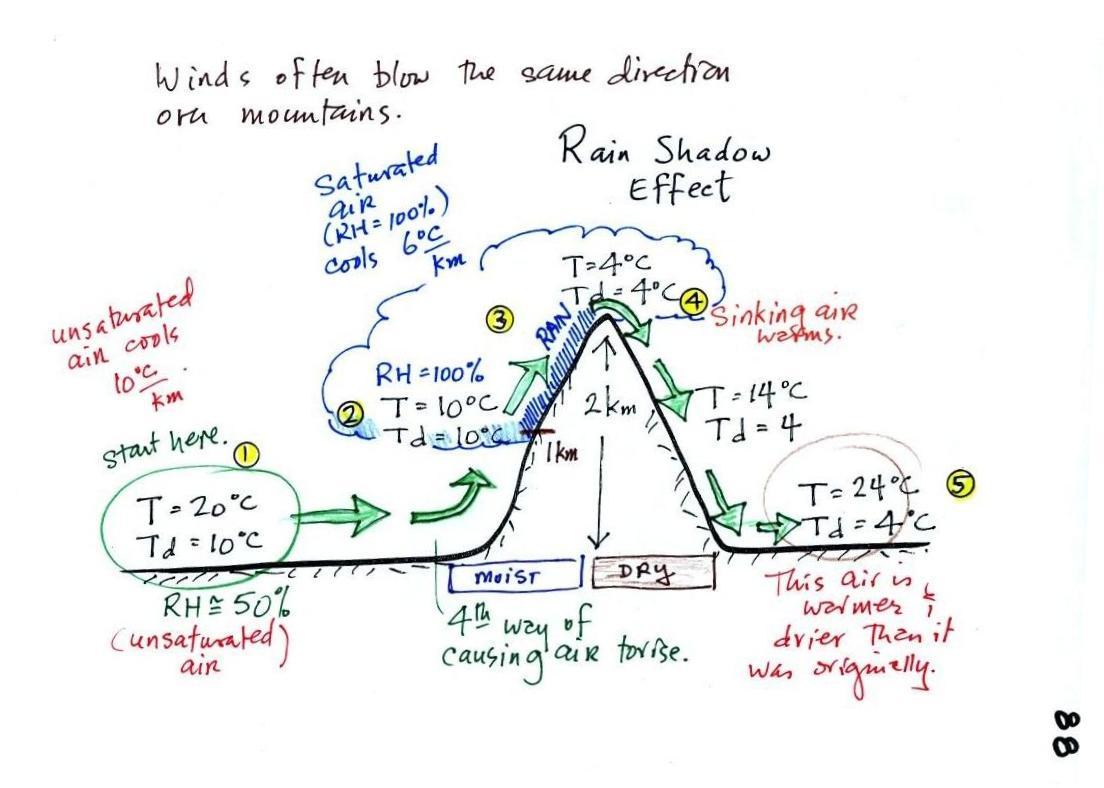 Winds often blow the same direction
over mountains.
Rain Shadow
Effect
Saturated
air
(RH=100%)
cools 6°C
km
unsaturated
air cools
10°C
km
start here.
1
T=20°C
Td=10°C
RH≅50%
(unsaturated)
air
2
RH=100%
T=10°C
Td=10°C
3
RAIN
T=4°C
Td=4°C
4
Sinking air
warms.
1km
2km
T=14°C
Td=4
T=24°C
Td=4°C
5
MOIST
DRY
4th way of
causing air to rise.
This air is
warmer &
drier than it
was originally.
88